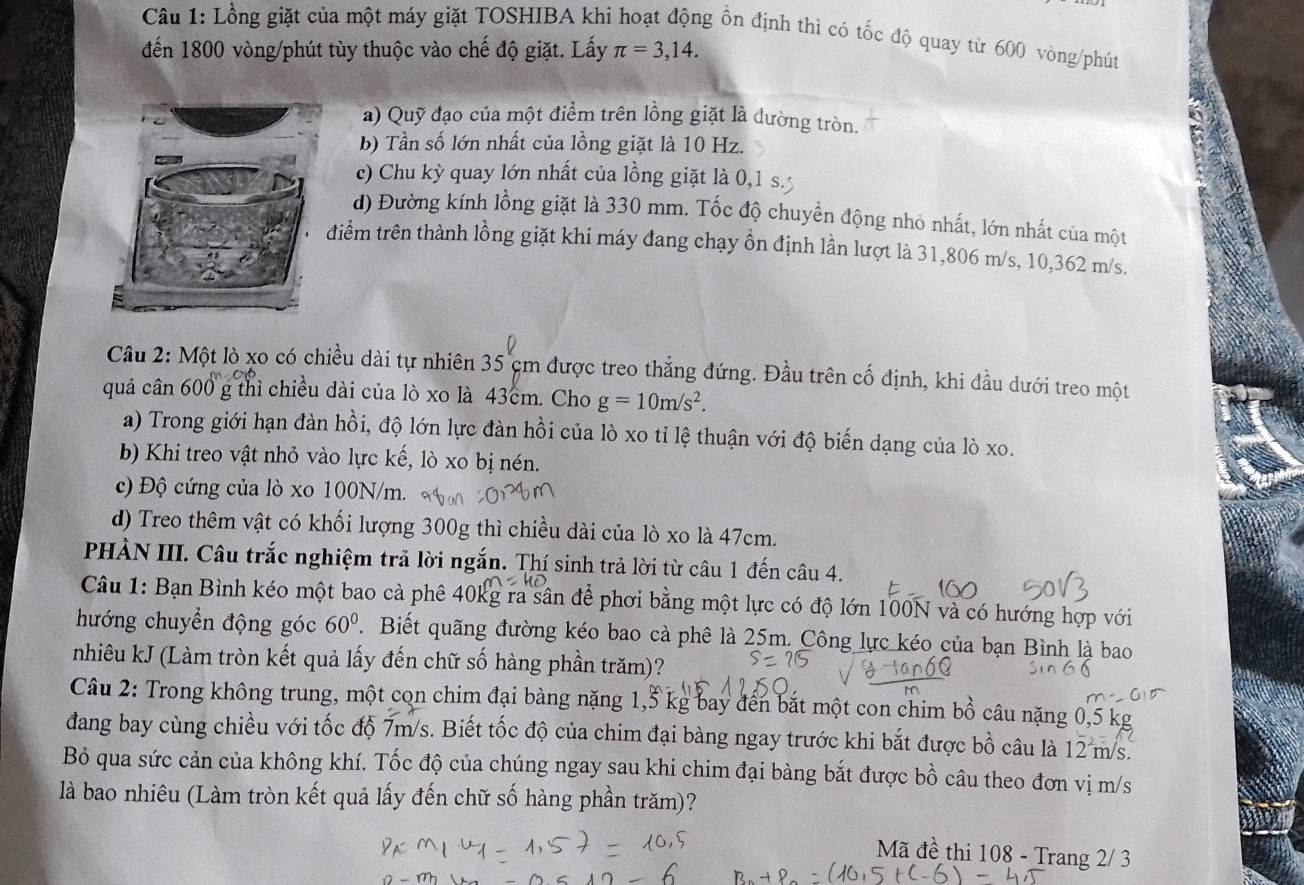 Câu 1: Lồng giặt của một máy giặt TOSHIBA khi hoạt động ổn định thì có tốc độ quay từ 600 vòng/phút
đến 1800 vòng/phút tùy thuộc vào chế độ giặt. Lấy π = 3,14.
a) Quỹ đạo của một điểm trên lồng giặt là đường tròn.
b) Tần số lớn nhất của lồng giặt là 10 Hz.
c) Chu kỳ quay lớn nhất của lồng giặt là 0,1 s.
d) Đường kính lồng giặt là 330 mm. Tốc độ chuyển động nhỏ nhất, lớn nhất của một
điểm trên thành lồng giặt khi máy đang chạy ổn định lần lượt là 31,806 m/s, 10,362 m/s.
Câu 2: Một lò xo có chiều dài tự nhiên 35 cm được treo thẳng đứng. Đầu trên cố định, khi đầu dưới treo một
quả cân 600 g thì chiều dài của lò xo là 43cm. Cho g = 10m/s².
a) Trong giới hạn đàn hồi, độ lớn lực đàn hồi của lò xo tỉ lệ thuận với độ biến dạng của lò xo.
b) Khi treo vật nhỏ vào lực kế, lò xo bị nén.
c) Độ cứng của lò xo 100N/m.
d) Treo thêm vật có khối lượng 300g thì chiều dài của lò xo là 47cm.
PHẦN III. Câu trắc nghiệm trả lời ngắn. Thí sinh trả lời từ câu 1 đến câu 4.
m = 40 100 50√3
Câu 1: Bạn Bình kéo một bao cà phê 40kg ra sân để phơi bằng một lực có độ lớn 100N và có hướng hợp với
hướng chuyển động góc 60⁰. Biết quãng đường kéo bao cà phê là 25m. Công lực kéo của bạn Bình là bao
nhiêu kJ (Làm tròn kết quả lấy đến chữ số hàng phần trăm)?
1250
Câu 2: Trong không trung, một con chim đại bàng nặng 1,5 kg bay đến bắt một con chim bồ câu nặng 0,5 kg
đang bay cùng chiều với tốc độ 7m/s. Biết tốc độ của chim đại bàng ngay trước khi bắt được bồ câu là 12 m/s.
Bỏ qua sức cản của không khí. Tốc độ của chúng ngay sau khi chim đại bàng bắt được bồ câu theo đơn vị m/s
là bao nhiêu (Làm tròn kết quả lấy đến chữ số hàng phần trăm)?
m₁ v₁ = 1,5 7 = 10,5
Mã đề thi 108 - Trang 2/ 3
= (10,5 + (-6) = 4,5